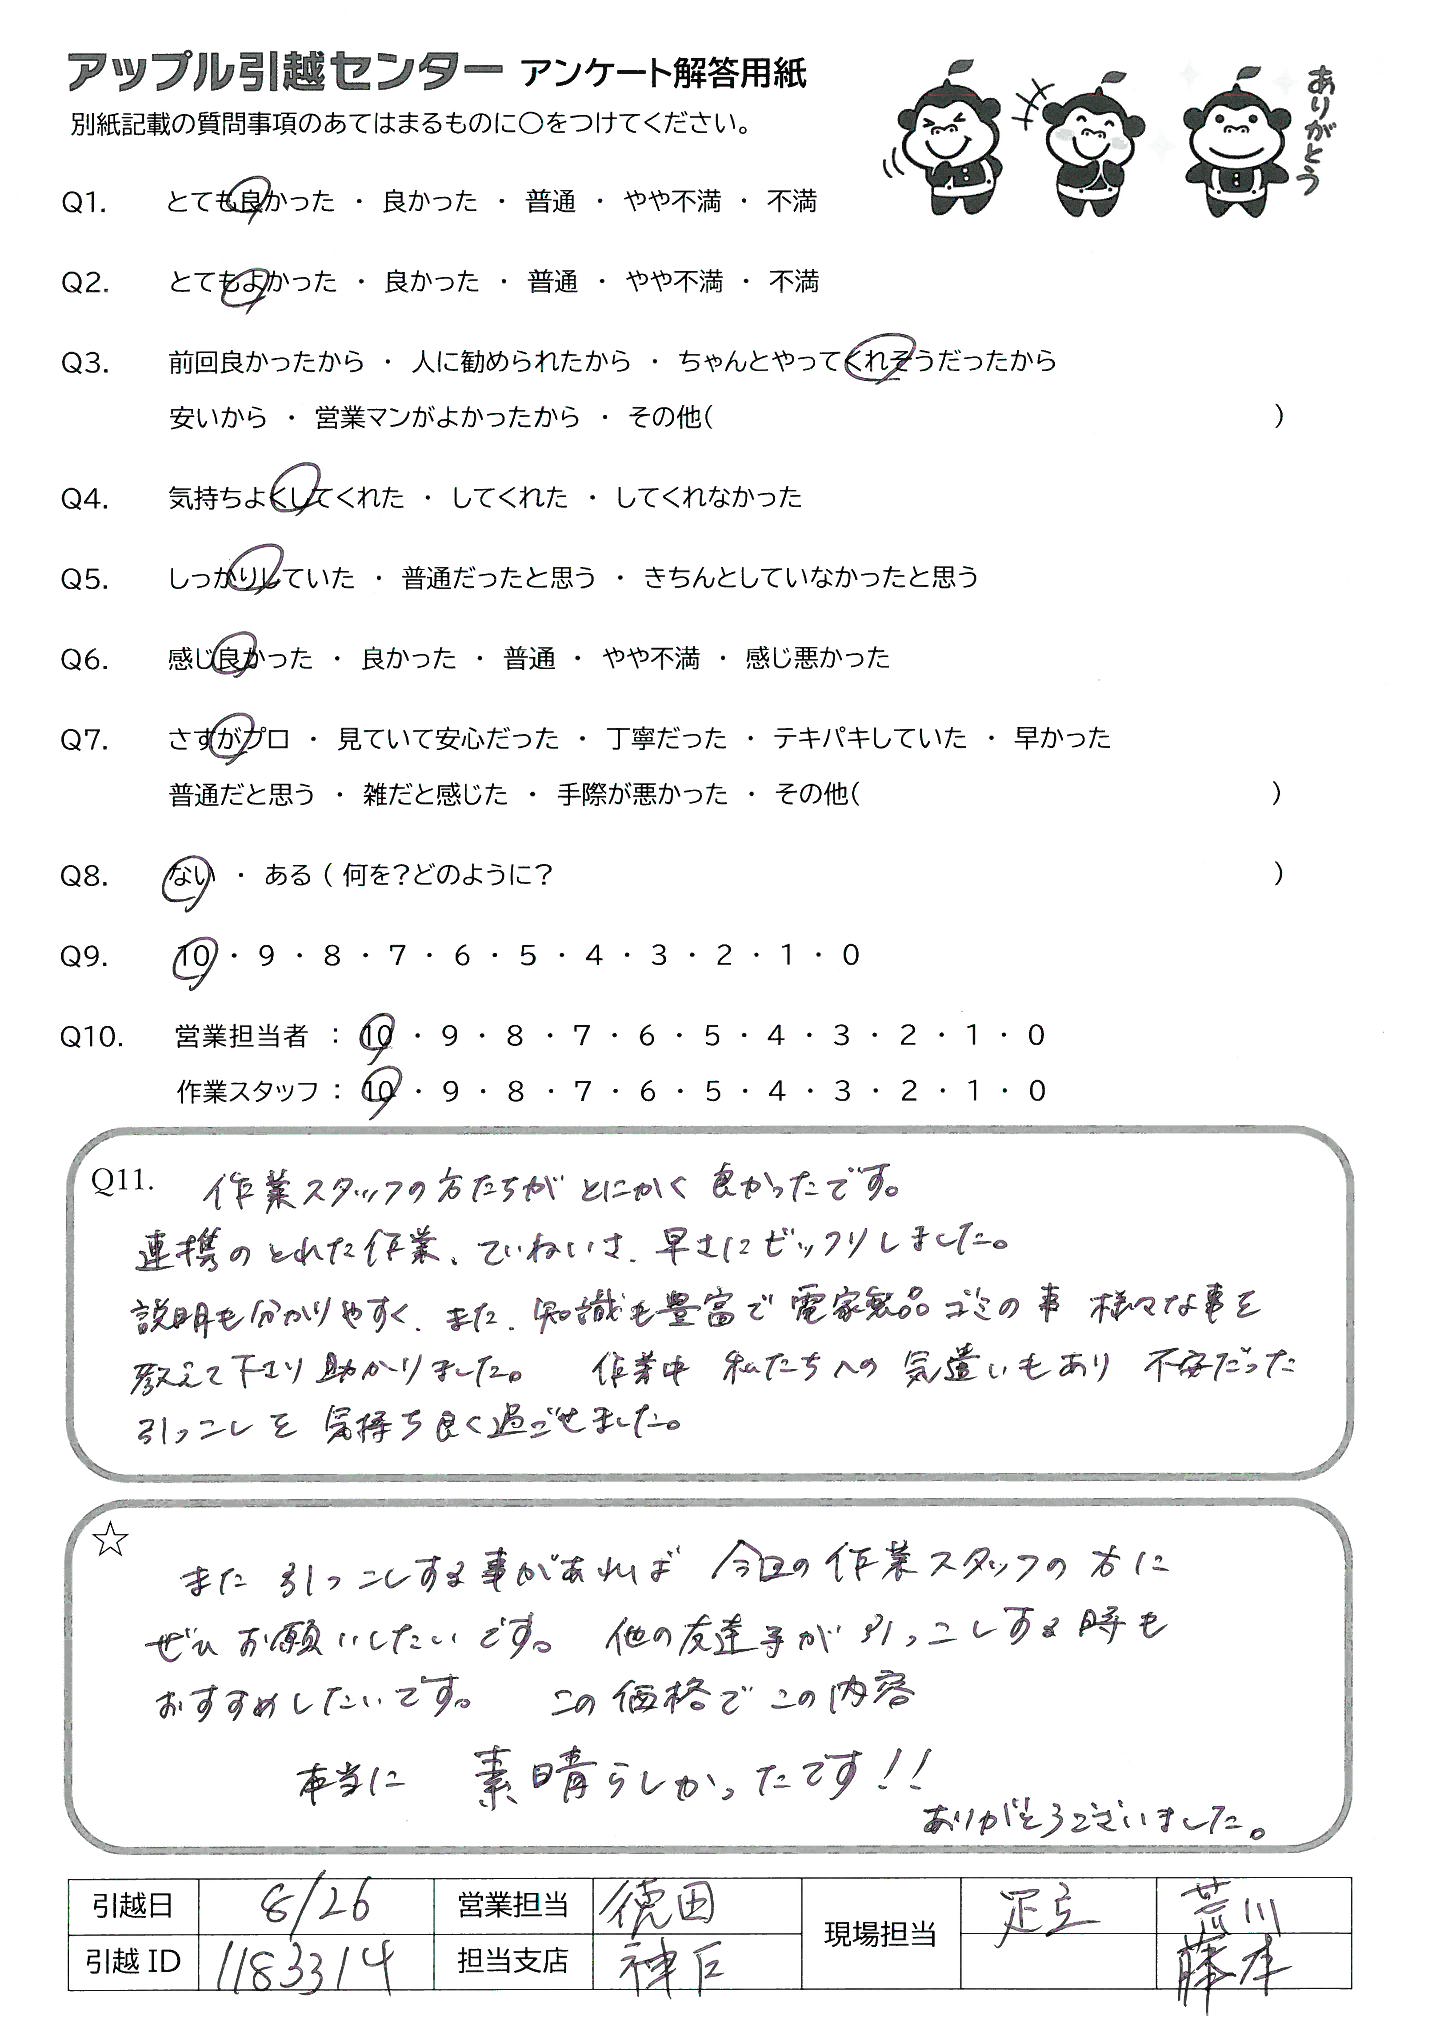 アップル引越センター アンケート解答用紙
別紙記載の質問事項のあてはまるものに○をつけてください。
ありがとう
Q1. とても良かった ・ 良かった ・ 普通 ・ やや不満 ・ 不満
Q2. とてもよかった ・ 良かった ・ 普通 ・ やや不満 ・ 不満
Q3. 前回良かったから ・ 人に勧められたから ・ ちゃんとやってくれそうだったから
安いから ・ 営業マンがよかったから ・ その他( )
Q4. 気持ちよくしてくれた ・ してくれた ・ してくれなかった
Q5. しっかりしていた ・ 普通だったと思う ・ きちんとしていなかったと思う
Q6. 感じ良かった ・ 良かった ・ 普通 ・ やや不満 ・ 感じ悪かった
Q7. さすがプロ ・ 見ていて安心だった ・ 丁寧だった ・ テキパキしていた ・ 早かった
普通だと思う ・ 雑だと感じた ・ 手際が悪かった ・ その他( )
Q8. ない ・ ある ( 何を?どのように? )
Q9. 10 ・ 9 ・ 8 ・ 7 ・ 6 ・ 5 ・ 4 ・ 3 ・ 2 ・ 1 ・ 0
Q10. 営業担当者 : 10 ・ 9 ・ 8 ・ 7 ・ 6 ・ 5 ・ 4 ・ 3 ・ 2 ・ 1 ・ 0
作業スタッフ : 10 ・ 9 ・ 8 ・ 7 ・ 6 ・ 5 ・ 4 ・ 3 ・ 2 ・ 1 ・ 0
Q11. 作業スタッフの方たちがとにかく良かったです。
連携のとれた作業、ていねいさ、早さにビックリしました。
説明も分かりやすく、また、知識も豊富で電家製品ゴミの事 様々な事を
教えて下さり助かりました。 作業中 私たちへの気遣いもあり 不安だった
引っこしを気持ち良く過ごせました。
☆
また引っこしする事があれば今回の作業スタッフの方に
ぜひお願いしたいです。 他の友達等が引っこしする時も
おすすめしたいです。 この価格でこの内容
本当に 素晴らしかったです!!
ありがとうございました。
引越日 8/26 営業担当 徳田 現場担当 足立 荒川
引越ID 1183314 担当支店 神戸 藤本